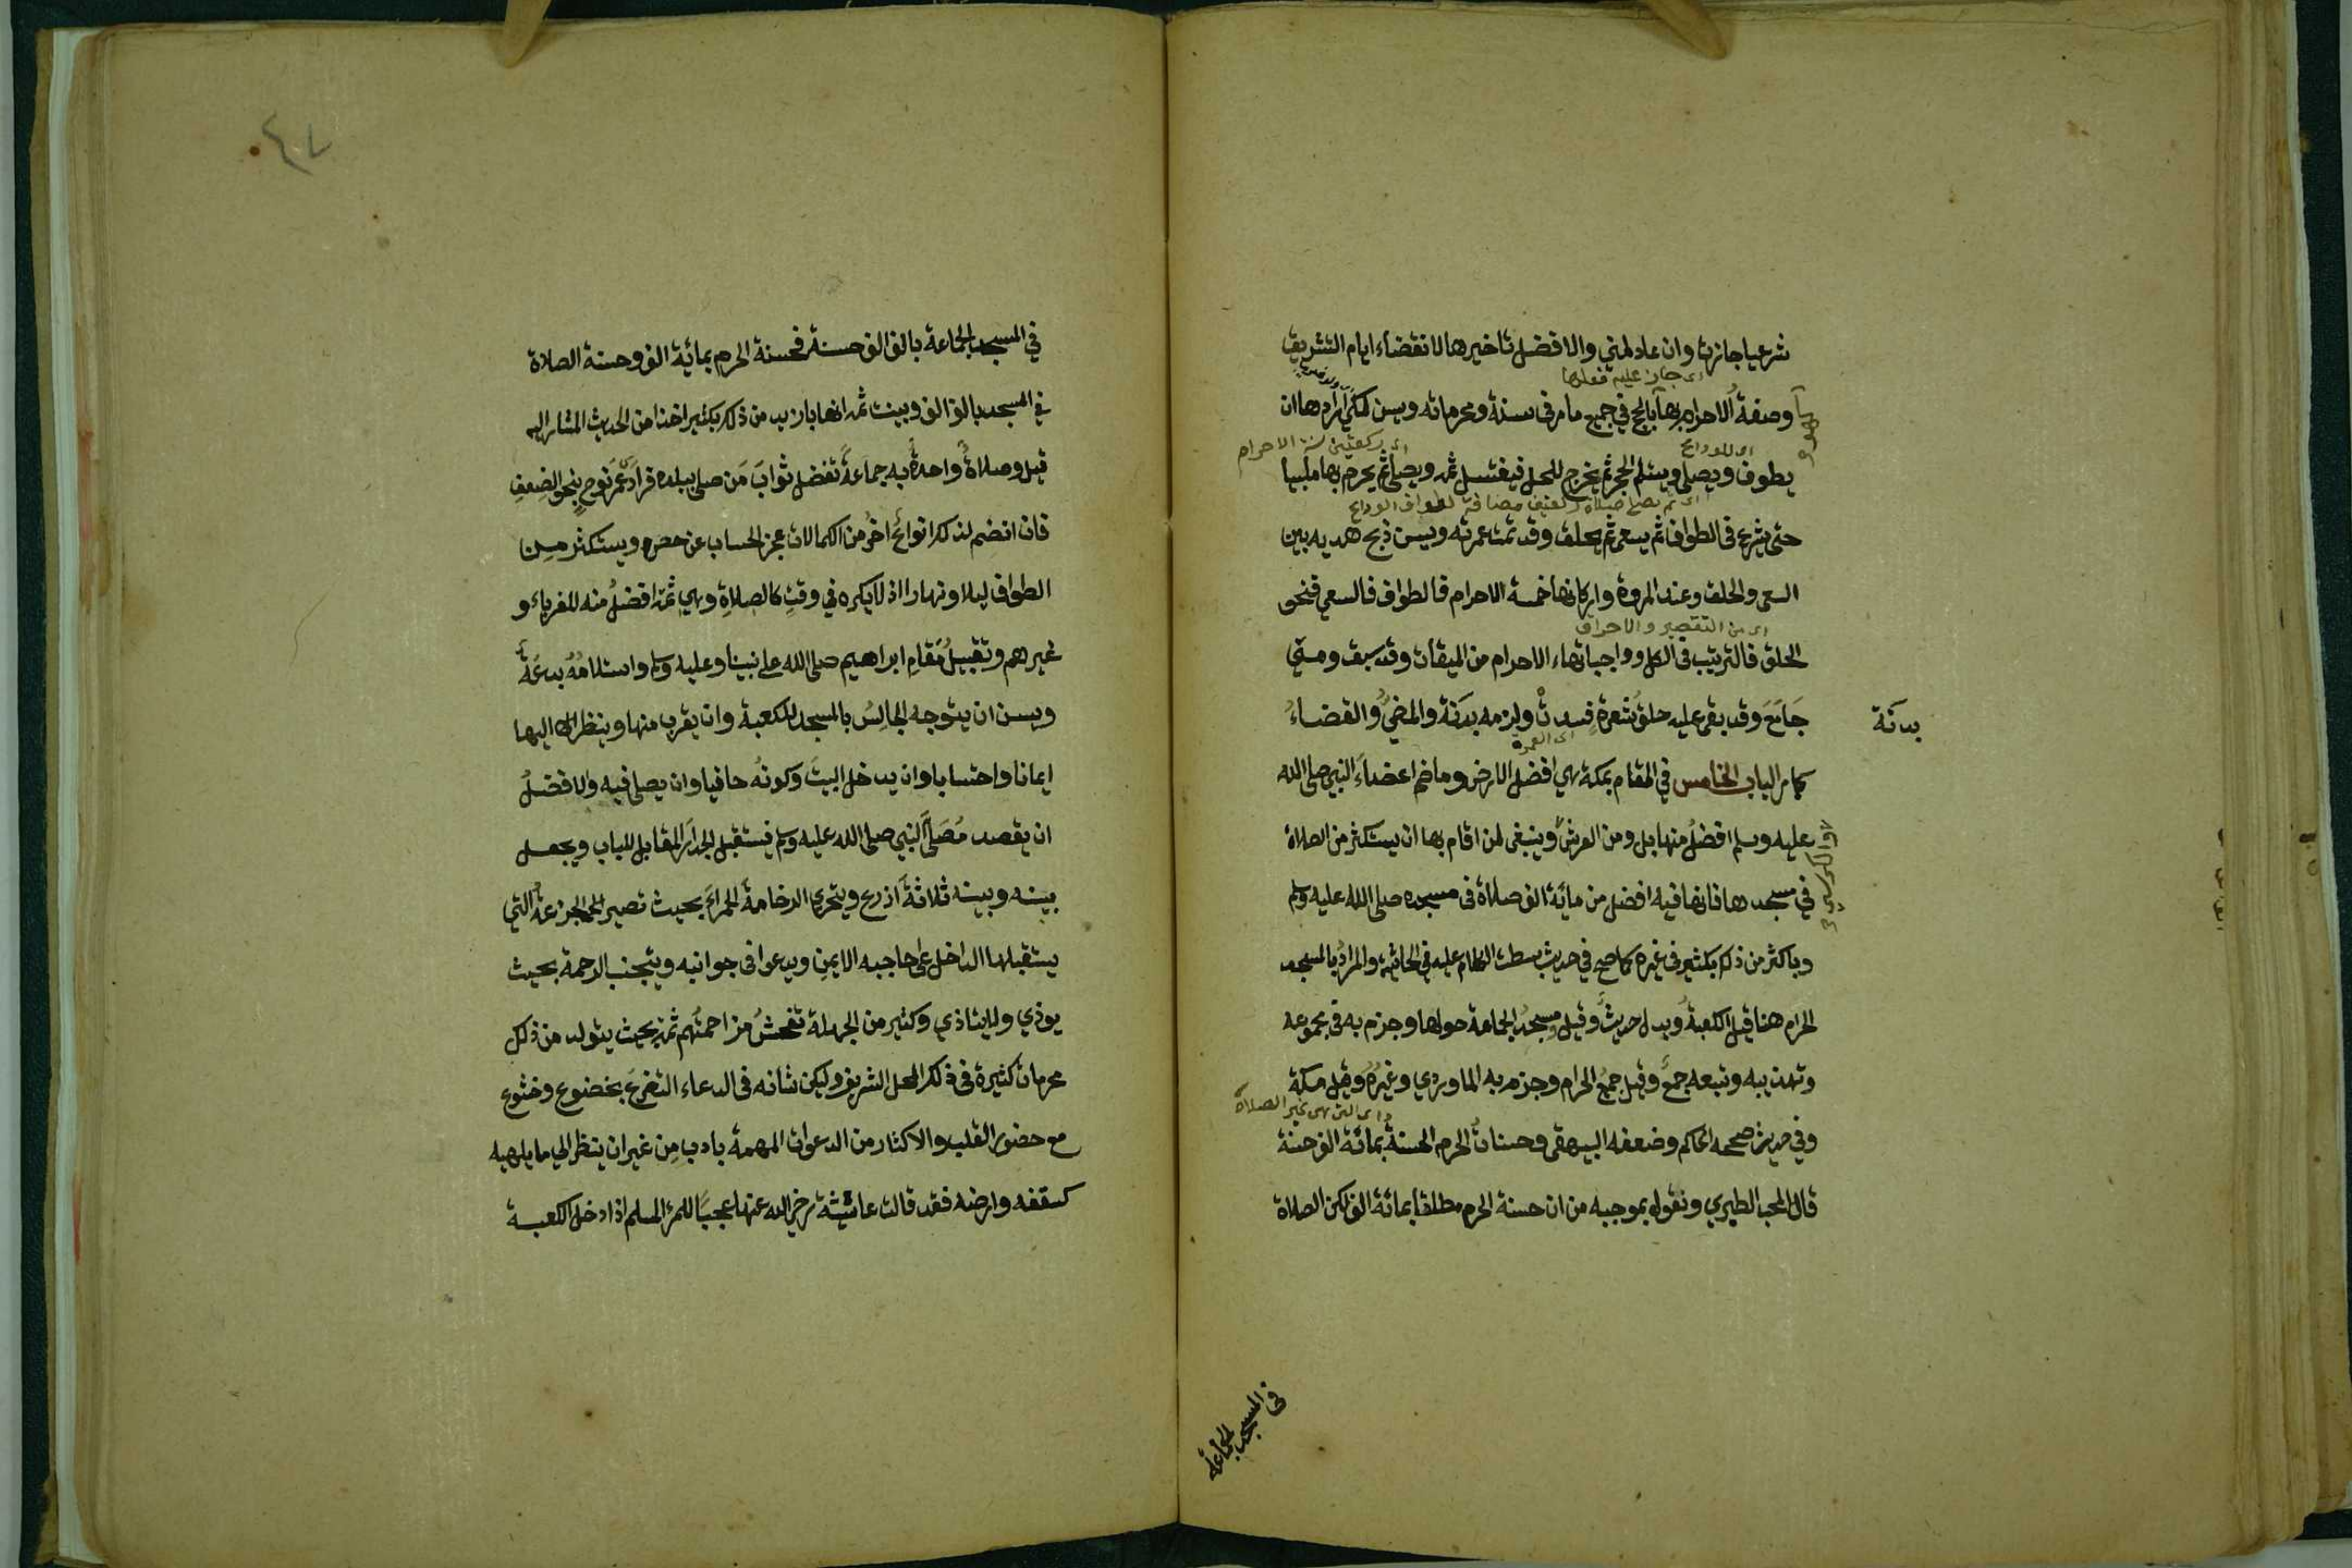 شرعيا جازت وان عاد لمني والافضل تاخيرها لانقضاء ايام التشريق
اى جاز عليه فعلها
وصفة الاحرام بها كالحج في جميع ما مر فى سننه ومحرماته ويسن لمكي اراد هاان
اى للوداع
اى ركعتين سنة الاحرام
يطوف ويصلى ويستلم الحجر ثم يخرج للحل فيغتسل ثمه ويصلى ثم يحرم بها ملبيا
لطواف الوداع
حتى يشرع فى الطواف ثم يسعى ثم يحلق وقد تمت عمرته ويسن ذبح هديه بين
السعى والحلق وعند المروة واركانها خمسة الاحرام فالطواف فالسعي فنحو
اى من التقصير والاحراق
الحلق فالترتيب فى الكل وواجباتهاء الاحرام من الميقات وقد سبق ومتي
جَامَعَ وقد بقى عليه حلق شعرةٍ فسدت ولزمه بدنة والمضيُّ والقضاءُ
بدنة
اى العمرة
كما مر الباب الخامس في المقام بمكة هي افضل الارض وما ضم اعضاءَ النبي صلى الله
عليه وسلم افضلُ منها بل ومن العرش وينبغى لمن اقام بها ان يستكثر من الصلاة
في مسجدها فانها فيه افضل من مائة الف صلاة فى مسجده صلى الله عليه وسلم
وباكثر من ذلك بكثير فى غيره كما صح في حديث بسطت الكلام عليه في الحاشية والمرادُ بالمسجد
الحرام هنا قيل الكعبةُ ويدل حديثٌ وقيل مسجدُ الجماعة حولها وجزم به فى مجموعه
وتهذيبه وتبعه جمعٌ وقيل جميعُ الحرام وجزم به الماوردي وغيرُهُ وقيل مكة
اى التى هى غير الصلاة
وفي حديث صححه الحاكم وضعفه البيهقى وحسناتُ الحرم الحسنةُ بمائة الف حسنة
قال المحب الطبري ونقول بموجبه من ان حسنة الحرم مطلقا بمائة الف لكن الصلاة
فى المسجد الجماعة
٤٧
في المسجد الجماعة بالف الف حسنة فحسنة الحرم بمائة الف وحسنة الصلاة
في المسجد بالف الف وبينت ثمه انها بازيد من ذلك بكثير اخذا من الحديث المشار اليه
قبل وصلاةٌ واحدةٌ به جماعةً تفضل ثوابَ مَن صلى ببلده فرادى عُمَر نوحٍ بنحو الضعف
فان انضم لذلك انواعٌ اخرُ من الكمالات عجز الحساب عن حصره ويستكثر مـن
الطواف ليلا ونهارا اذ لا يكره في وقتٍ كالصلاةِ وهي ثمه افضلُ منه للغرباء و
غيرهم وتقبيلُ مَقامِ ابراهيم صلى الله على نبينا وعليه وسلم واستلامُهُ بدعةٌ
ويسن ان يتوجه الجالسُ بالمسجد للكعبة وان يقرب منها وينظر اليها
ايمانا واحتسابا وان يدخل البيتَ وكونهُ حافيا وان يصلى فيه والافضلُ
ان يقصد مُصَلى النبي صلى الله عليه وسلم فيستقبل الجدارَ المقابل للباب ويجعل
بينه وبينه ثلاثةَ اذرع ويتحرى الرخامةَ الحمراءَ بحيث تصير الجزعةُ التي
يستقبلها الداخل على حاجبه الايمنِ ويدعوا فى جوانبه ويتجنب الزحمة بحيث
يوذي ولا يتاذي وكثير من الجهلة تفحشُ مزاحمتُهم ثمه بحيث يتولد من ذلك
محرمات كثيرة فى ذلك المحل الشريف وليكن شانه فى الدعاء التضرع بخضوع وخشوع
مع حضور القلب والاكثار من الدعوات المهمة بادب مِن غير ان ينظر الي ما يلهيه
كسقفه وارضه فقد قالت عائشة رضي الله عنها عجباً للمرء المسلم اذا دخل الكعبـة